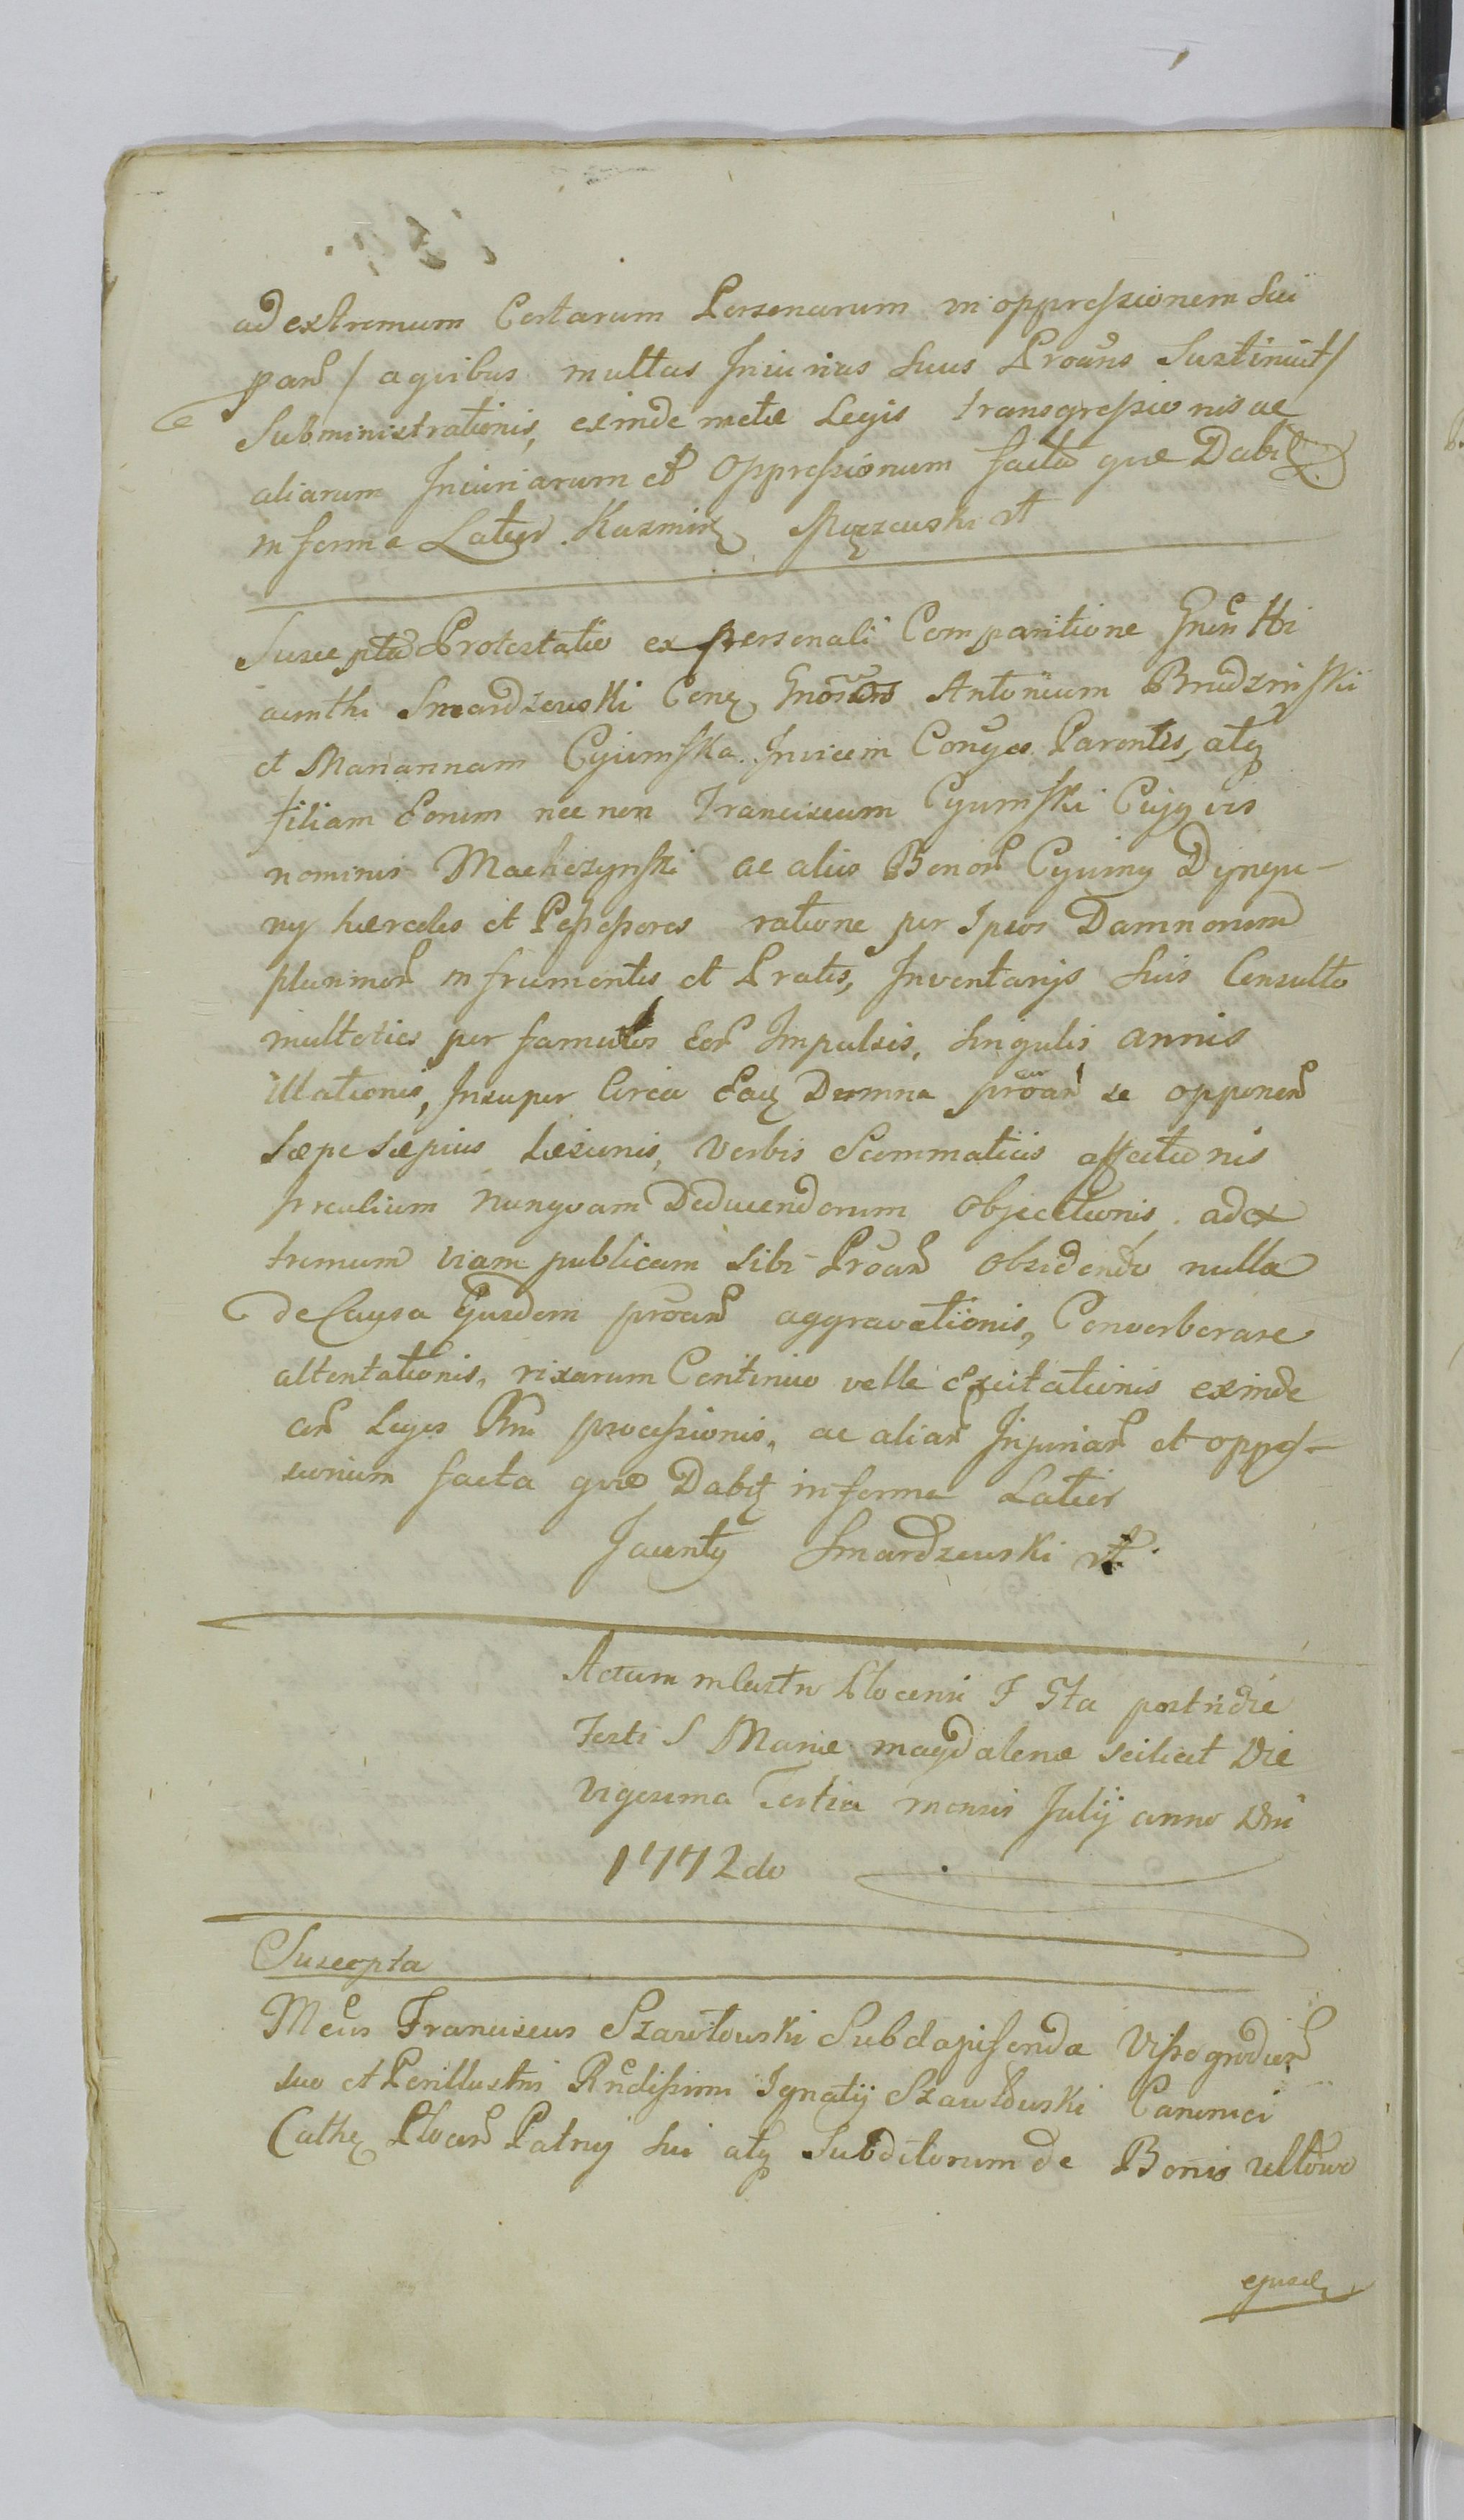 ad extremum Certarum Personarum in oppressionem Sui
pan / aquibus multas Iniurias Suus Proans Sustinuit /
Subministrationis, exinde metæ Legis transgressionis ac
aliarum Iniuriarum et Oppressionum facta quæ Dabit
in forma Latior. Kazmirz rt
Suscepta Protestatio ex personali Comparitione Gnen Hi
acinthi Smardzewski Conz Gnosos Antonium Brudzinski
et Mariannam Cyiumska Invicem Conges Parentes, atq
filiam Eorum nec non Franciscum Cyumski Cujqvis
nominis Machczynski ac alios Bonon Cyumy
ny hæredes et Possessores ratione per Ipsos Damnorum
plurimon in frumentis et Pratis, Inventarijs Suis Consulto
multoties per famulos Eon Impulsis, Singulis annis
Illationis, Insuper Circa Eaq Damna proan se opponen
Sæpe Sæpius Læsionis, Verbis Scommaticis affectionis
prœlium nunqvam Deducendorum Objectionis, ad ex
tremum viam publicam Sibi Proan Obsidendo nulla
de Causa Ejusdem proan aggravationis, Converberare
attentationis, rixarum Continuo velle Excitationis exinde
con Leges Rni processionis, ac alian Injurian et oppres-
sionum facta quæ Dabit in forma Latior
Jacenty Smardzewski rt
Actum in Castro Plocensi F Sta postridie
Festi S Mariæ Magdalenæ scilicet Die
vigesima Tertia mensis Julij anno Dni
1772do
Suscepta
Mcus Franciscus Szawłowski Subdapifer Vissogrodien
suo et Perillustris Rndissimi Ignatij Szawłowski Canonici
Cathez Plocen Patrui Sui atq Subditorum de Bonis
ejusd